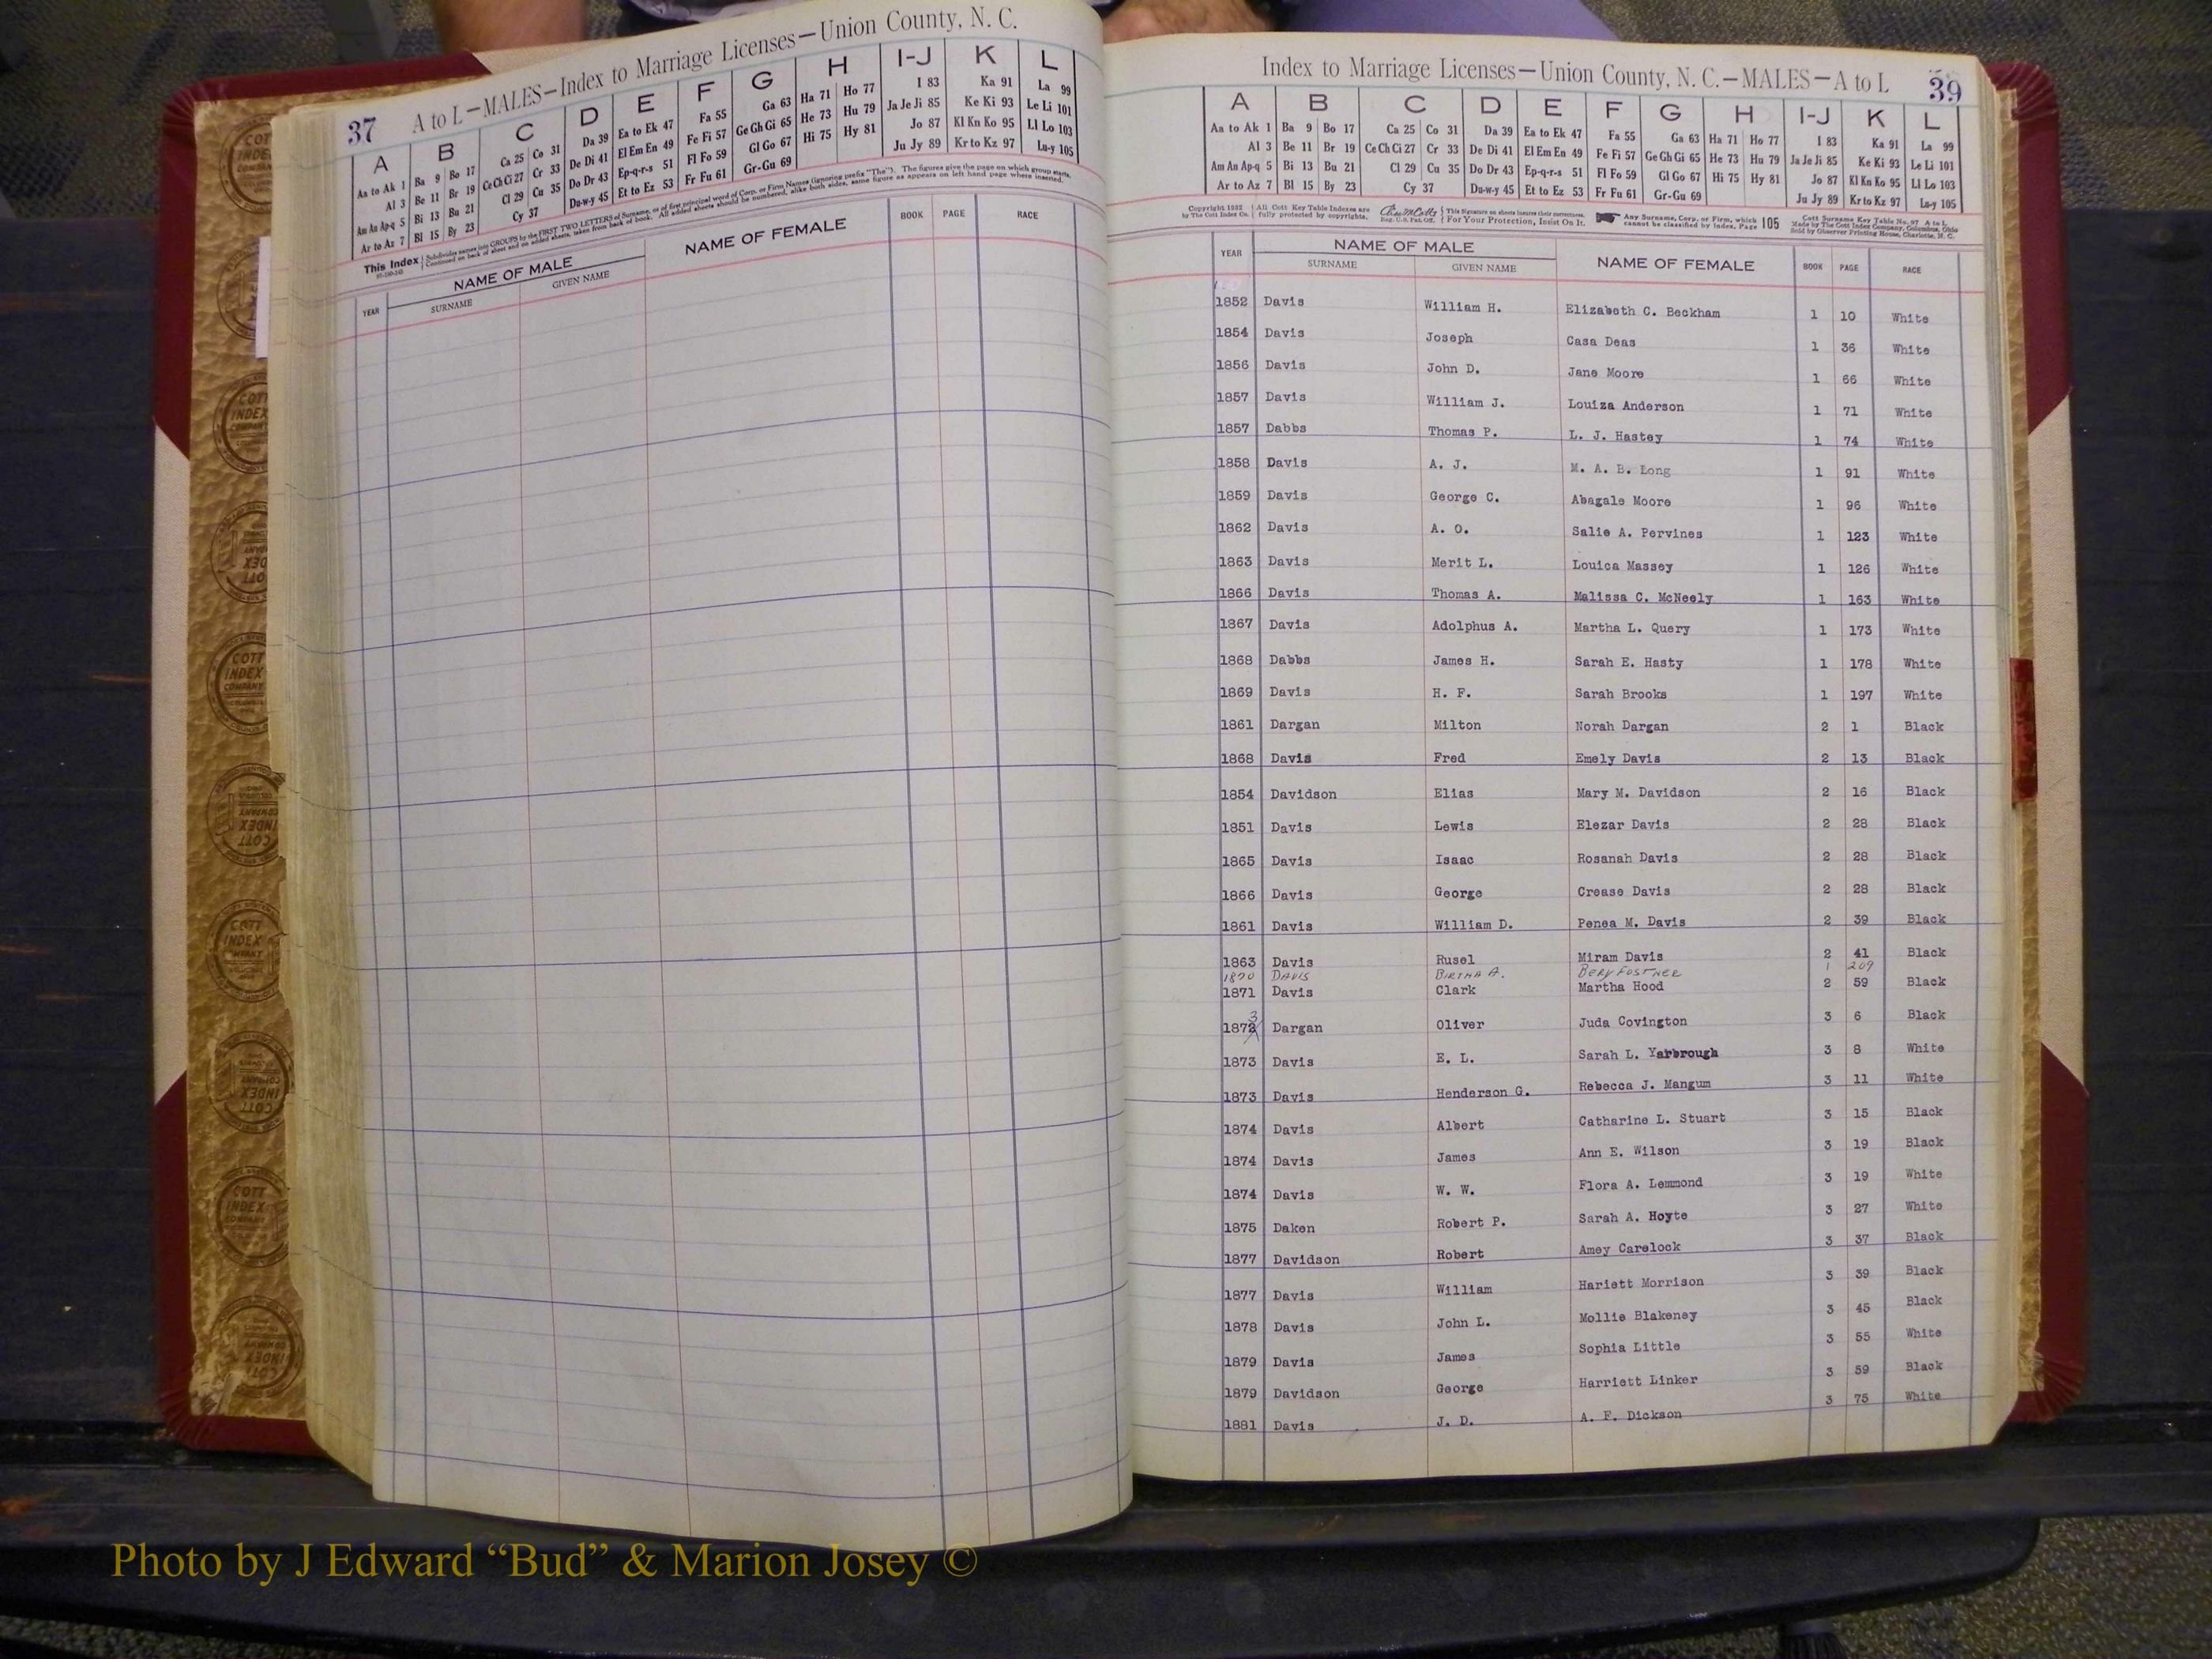 37 A to L—MALES—Index to Marriage Licenses—Union County, N. C.
A B C D E F G H I-J K L
Aa to Ak 1 Ba 9 Bo 17 Ca 25 Co 31 Da 39 Ea to Ek 47 Fa 55 Ga 63 Ha 71 Ho 77 I 83 Ka 91 La 99
Al 3 Be 11 Br 19 Ce Ch Ci 27 Cr 33 De Di 41 El Em En 49 Fe Fi 57 Ge Gh Gi 65 He 73 Hu 79 Ja Je Ji 85 Ke Ki 93 Le Li 101
Am An Ap-q 5 Bi 13 Bu 21 Cl 29 Cu 35 Do Dr 43 Ep-q-r-s 51 Fl Fo 59 Gl Go 67 Hi 75 Hy 81 Jo 87 Kl Kn Ko 95 Ll Lo 103
Ar to Az 7 Bl 15 By 23 Cy 37 Du-w-y 45 Et to Ez 53 Fr Fu 61 Gr-Gu 69 Ju Jy 89 Kr to Kz 97 Lu-y 105
This Index Subdivides names into GROUPS by the FIRST TWO LETTERS of Surname, or of first principal word of Corp. or Firm Names (ignoring prefix "The"). The figures give the page on which group starts.
Continued on back of sheet and on added sheets, taken from back of book. All added sheets should be numbered, alike both sides, same figure as appears on left hand page where inserted.
YEAR NAME OF MALE NAME OF FEMALE BOOK PAGE RACE
SURNAME GIVEN NAME
Index to Marriage Licenses—Union County, N. C.—MALES—A to L 39
A B C D E F G H I-J K L
Aa to Ak 1 Ba 9 Bo 17 Ca 25 Co 31 Da 39 Ea to Ek 47 Fa 55 Ga 63 Ha 71 Ho 77 I 83 Ka 91 La 99
Al 3 Be 11 Br 19 Ce Ch Ci 27 Cr 33 De Di 41 El Em En 49 Fe Fi 57 Ge Gh Gi 65 He 73 Hu 79 Ja Je Ji 85 Ke Ki 93 Le Li 101
Am An Ap-q 5 Bi 13 Bu 21 Cl 29 Cu 35 Do Dr 43 Ep-q-r-s 51 Fl Fo 59 Gl Go 67 Hi 75 Hy 81 Jo 87 Kl Kn Ko 95 Ll Lo 103
Ar to Az 7 Bl 15 By 23 Cy 37 Du-w-y 45 Et to Ez 53 Fr Fu 61 Gr-Gu 69 Ju Jy 89 Kr to Kz 97 Lu-y 105
Copyright 1932 All Cott Key Table Indexes are This Signature on sheets insures their correctness. Any Surname, Corp. or Firm, which 105 Cott Surname Key Table No. 97 A to L
by The Cott Index Co. fully protected by copyrights. Reg. U.S. Pat. Off. For Your Protection, Insist On It. cannot be classified by Index, Page Made by The Cott Index Company, Columbus, Ohio
Sold by Observer Printing House, Charlotte, N. C.
YEAR NAME OF MALE NAME OF FEMALE BOOK PAGE RACE
SURNAME GIVEN NAME
1852 Davis William H. Elizabeth C. Beckham 1 10 White
1854 Davis Joseph Casa Deas 1 36 White
1856 Davis John D. Jane Moore 1 66 White
1857 Davis William J. Louiza Anderson 1 71 White
1857 Dabbs Thomas P. L. J. Hastey 1 74 White
1858 Davis A. J. M. A. B. Long 1 91 White
1859 Davis George C. Abagale Moore 1 96 White
1862 Davis A. O. Salie A. Pervines 1 123 White
1863 Davis Merit L. Louica Massey 1 126 White
1866 Davis Thomas A. Malissa C. McNeely 1 163 White
1867 Davis Adolphus A. Martha L. Query 1 173 White
1868 Dabbs James H. Sarah E. Hasty 1 178 White
1869 Davis H. F. Sarah Brooks 1 197 White
1861 Dargan Milton Norah Dargan 2 1 Black
1868 Davis Fred Emely Davis 2 13 Black
1854 Davidson Elias Mary M. Davidson 2 16 Black
1851 Davis Lewis Elezar Davis 2 28 Black
1865 Davis Isaac Rosanah Davis 2 28 Black
1866 Davis George Crease Davis 2 28 Black
1861 Davis William D. Penea M. Davis 2 39 Black
1863 Davis Rusel Miram Davis 2 41 Black
1870 DAVIS BIRTHA A. BERY FOSTNER 1 209
1871 Davis Clark Martha Hood 2 59 Black
1873 Dargan Oliver Juda Covington 3 6 Black
1873 Davis E. L. Sarah L. Yarbrough 3 8 White
1873 Davis Henderson G. Rebecca J. Mangum 3 11 White
1874 Davis Albert Catharine L. Stuart 3 15 Black
1874 Davis James Ann E. Wilson 3 19 Black
1874 Davis W. W. Flora A. Lemmond 3 19 White
1875 Daken Robert P. Sarah A. Hoyte 3 27 White
1877 Davidson Robert Amey Carelock 3 37 Black
1877 Davis William Hariett Morrison 3 39 Black
1878 Davis John L. Mollie Blakeney 3 45 Black
1879 Davis James Sophia Little 3 55 White
1879 Davidson George Harriett Linker 3 59 Black
1881 Davis J. D. A. F. Dickson 3 75 White
Photo by J Edward “Bud” & Marion Josey ©